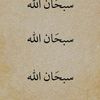 سبحَان الله
سبحَان الله
سبحَان الله